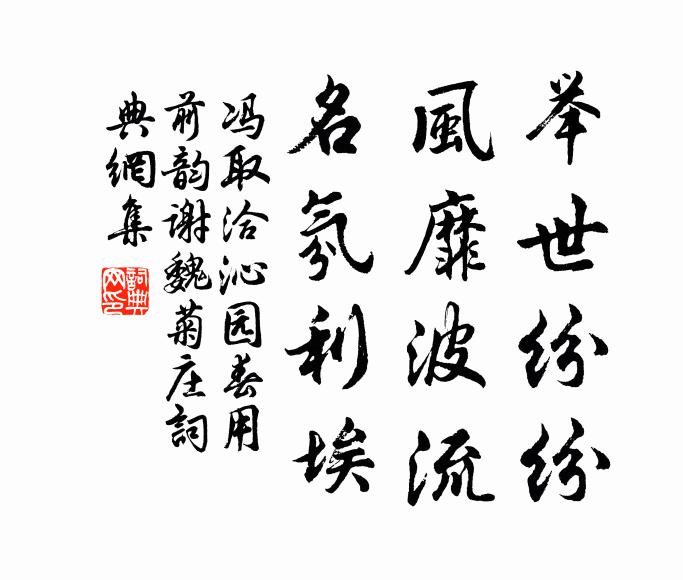 举世纷纷
風靡波流
名氛利埃
冯取洽沁园春用
前韵谢魏菊庄詞
典網集
詞典